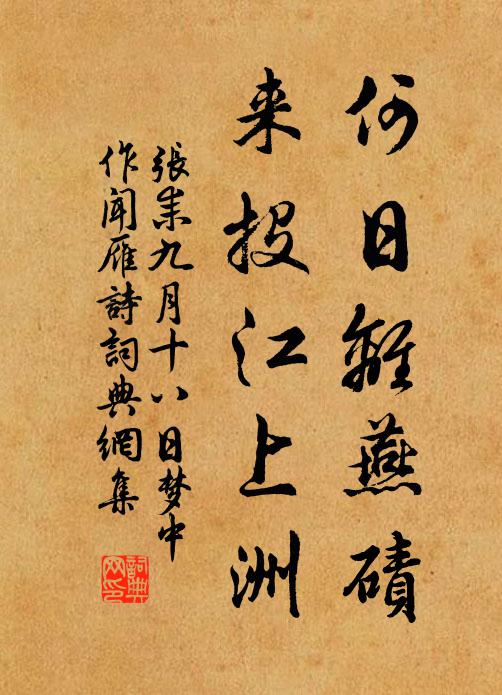 何日離燕磧
来投江上洲
張耒九月十八日梦中
作闻雁詩詞典網集
詞典网印